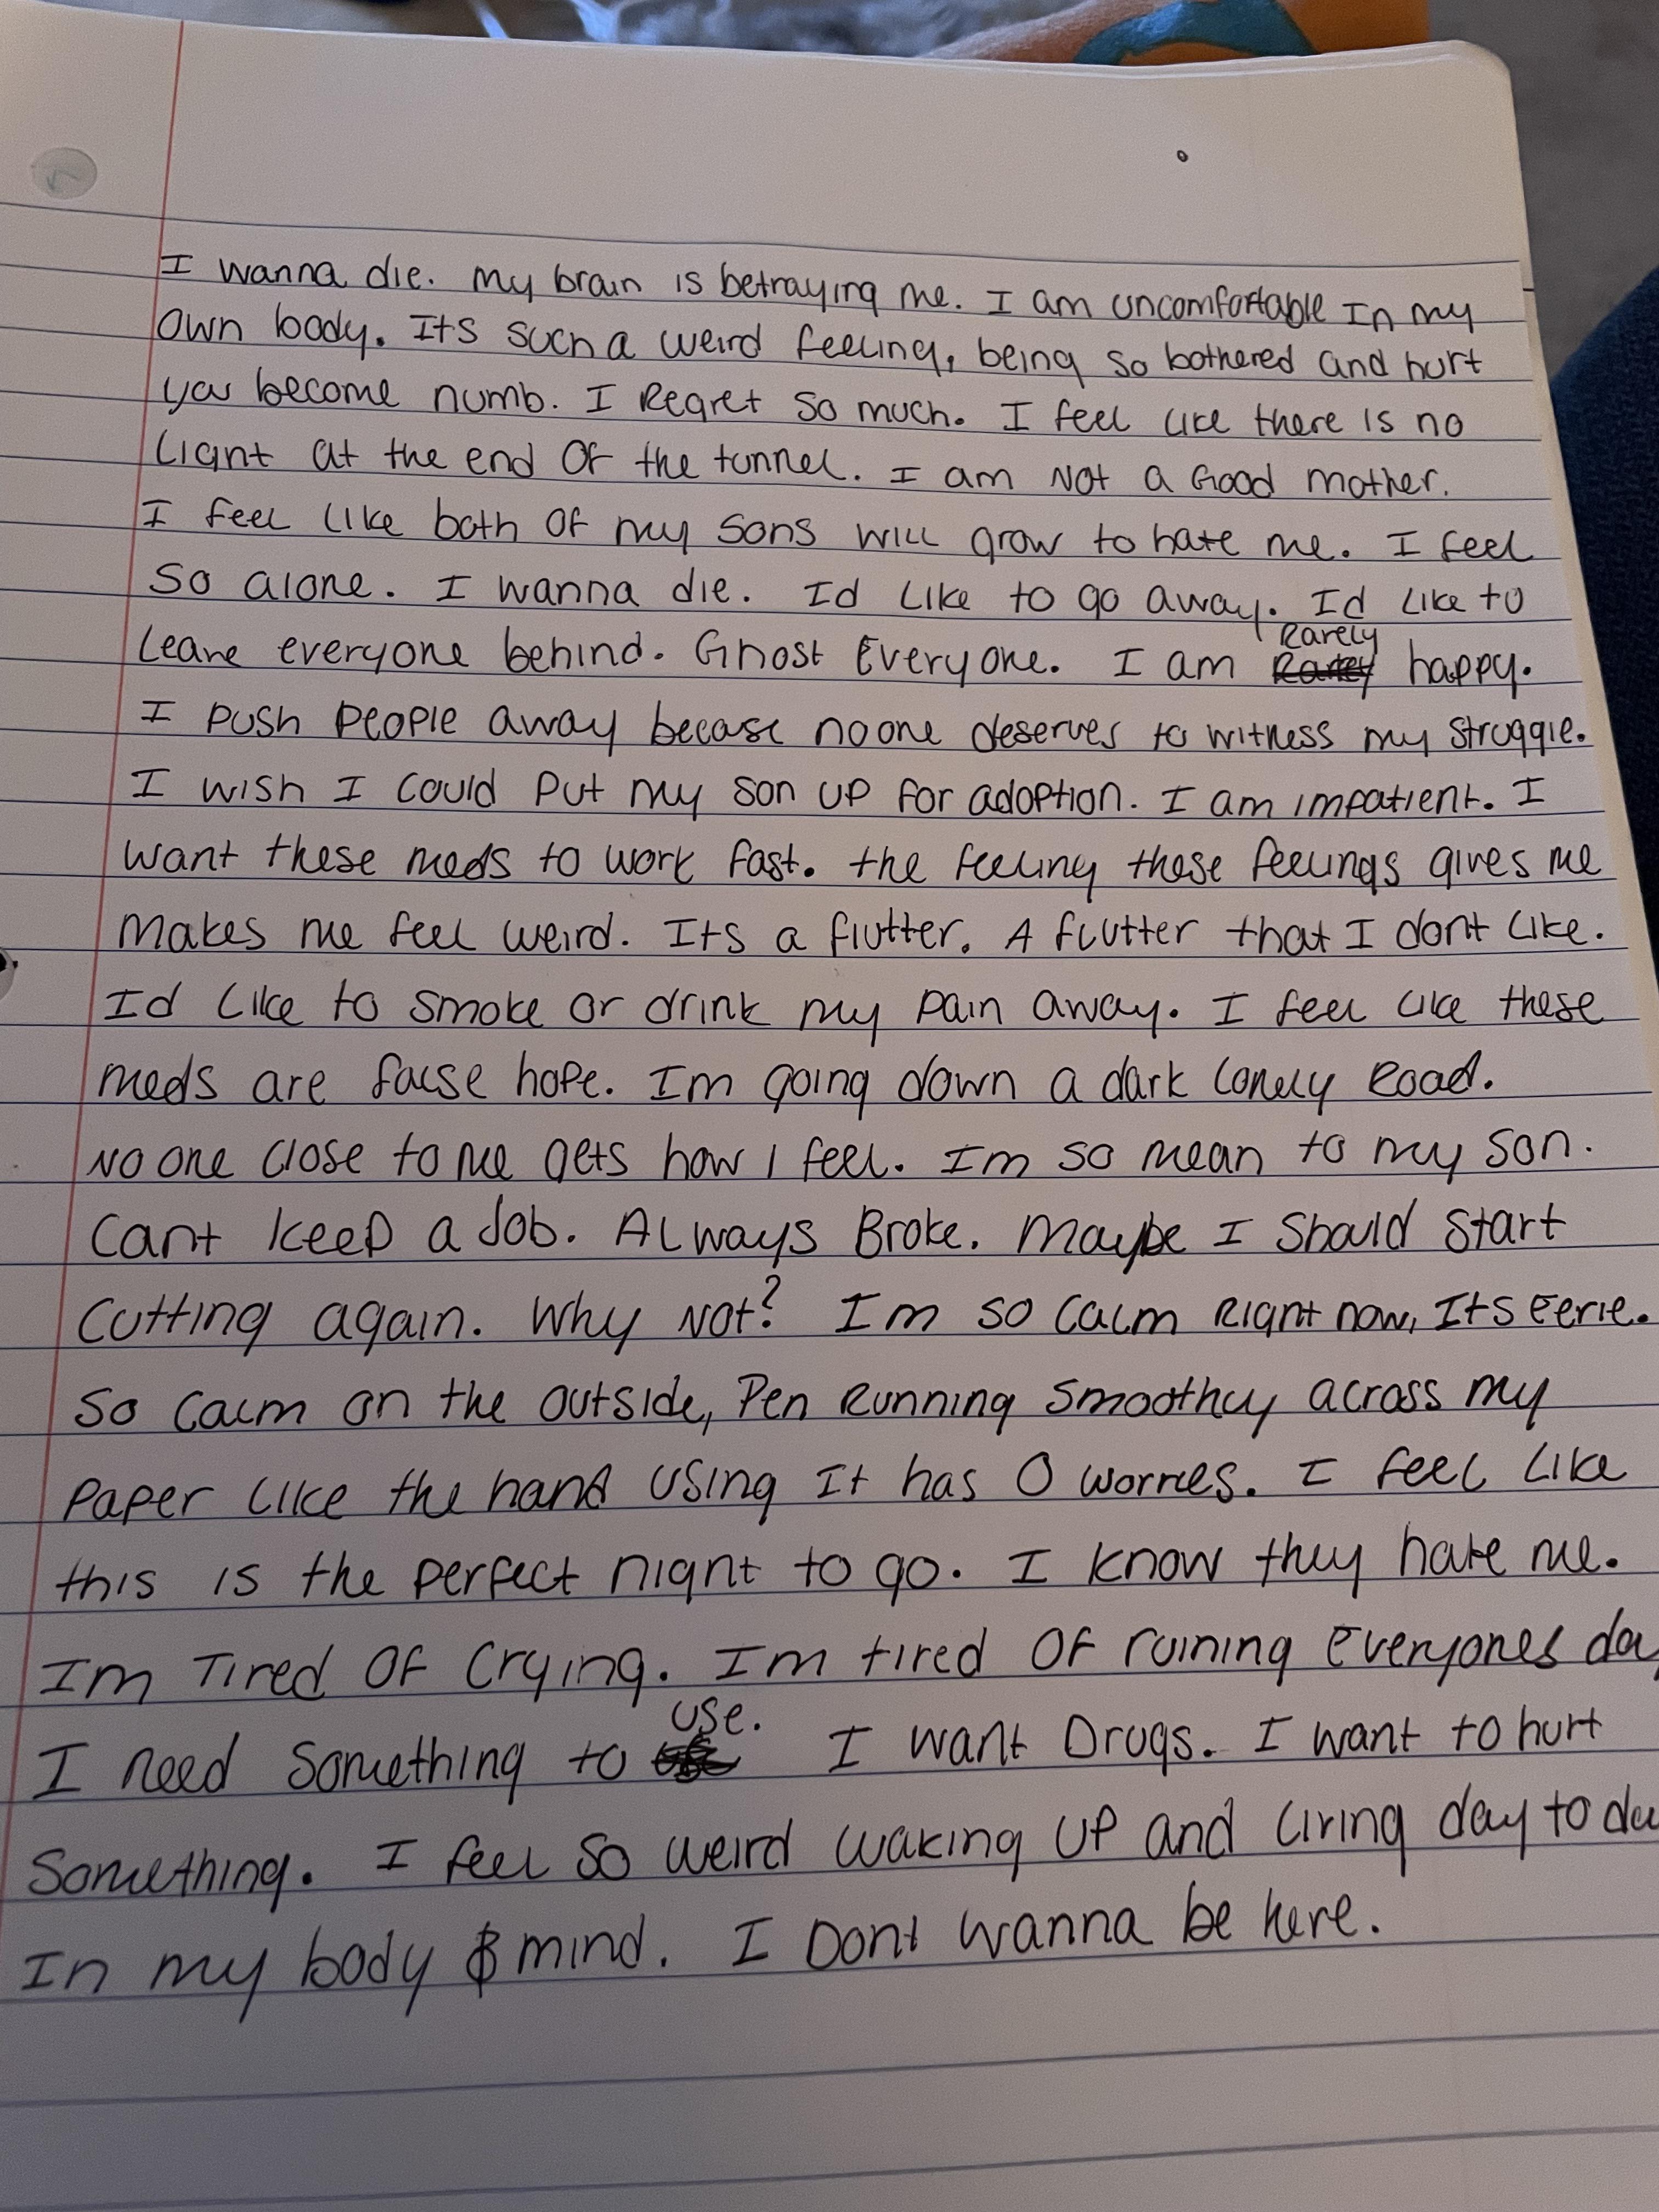 I wanna die. My brain is betraying me. I am uncomfortable In my
own body. Its such a weird feeling, being so bothered and hurt
you become numb. I Regret so much. I feel like there is no
Light at the end of the tunnel. I am Not a Good mother.
I feel like both of my sons will grow to hate me. I feel
so alone. I wanna die. Id Like to go away. Id Like to
Leave everyone behind. Ghost Everyone. I am Rarely happy.
I push people away becase no one deserves to witness my struggle.
I wish I could put my son up for adoption. I am impatient. I
want these meds to work fast. the feeling these feelings gives me
makes me feel weird. Its a flutter. A flutter that I dont Like.
Id Like to smoke or drink my pain away. I feel like these
meds are false hope. Im going down a dark lonely Road.
No one close to me gets how I feel. Im so mean to my son.
Cant keep a Job. Always Broke. Maybe I should start
cutting again. Why Not? Im so calm Right now, Its Eerie.
So calm on the outside, Pen Running smoothly across my
paper like the hand using It has 0 worries. I feel Like
this is the perfect night to go. I know they hate me.
Im Tired Of Crying. Im tired Of ruining Everyones da
I need something to use. I want Drugs. I want to hurt
Something. I feel so weird waking up and living day to da
In my body & mind. I Dont wanna be here.